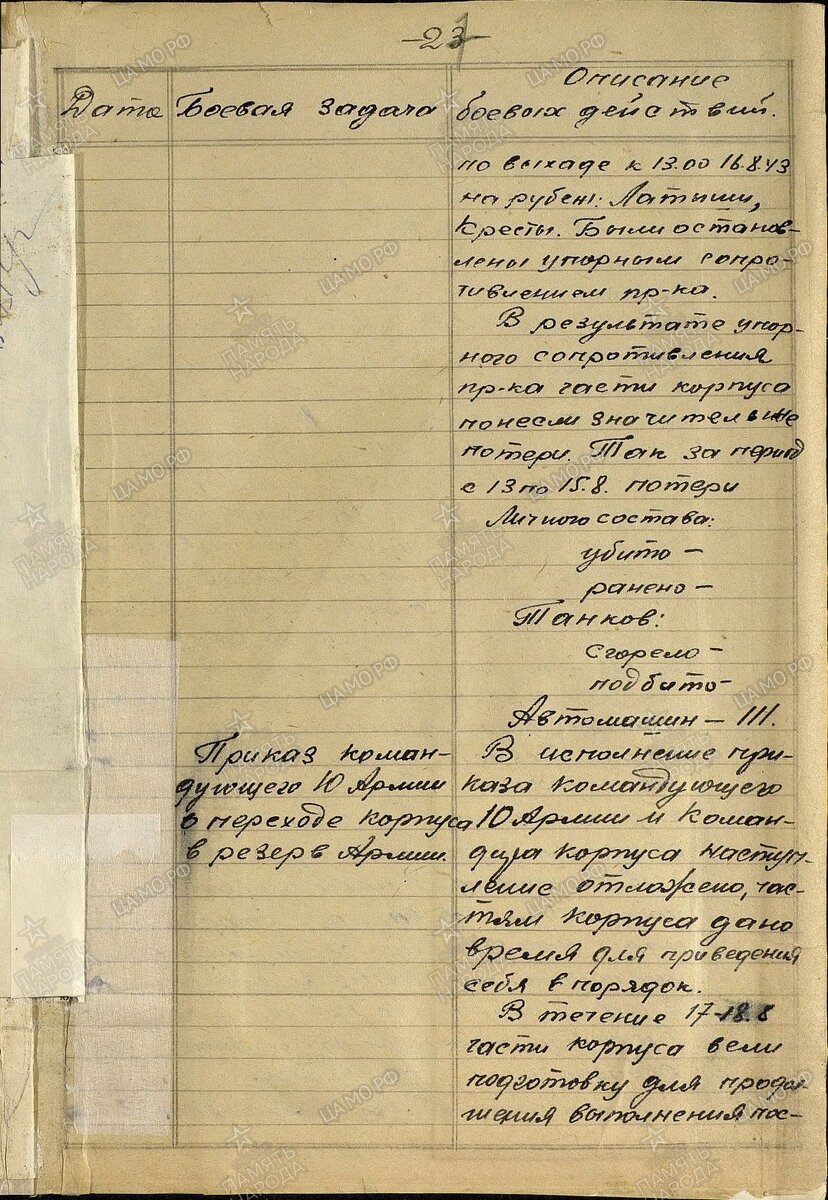 -23-
Дата
Боевая задача
Описание
боевых действий.
по выхаде к 13.00 16.8.43
на рубеж: Латыши,
Кресты. Были останов-
лены упорным сопро-
тивлением пр-ка.
В результате упор-
ного сопротивления
пр-ка части корпуса
понесли значительные
потери. Так за период
с 13 по 15.8. потери
Личного состава:
убито -
ранено -
Танков:
сгорело -
подбито -
Автомашин - III.
Приказ коман-
дующего 10 Армии
о переходе корпуса
в резерв Армии.
В исполнение при-
каза командующего
10 Армии и Коман-
дира корпуса наступ-
ление отложено, час-
тям корпуса дано
время для приведения
себя в порядок.
В течение 17-18.8
части корпуса вели
подготовку для продол-
жения выполнения пос-
ПАМЯТЬ
НАРОДА
ЦАМО.РФ